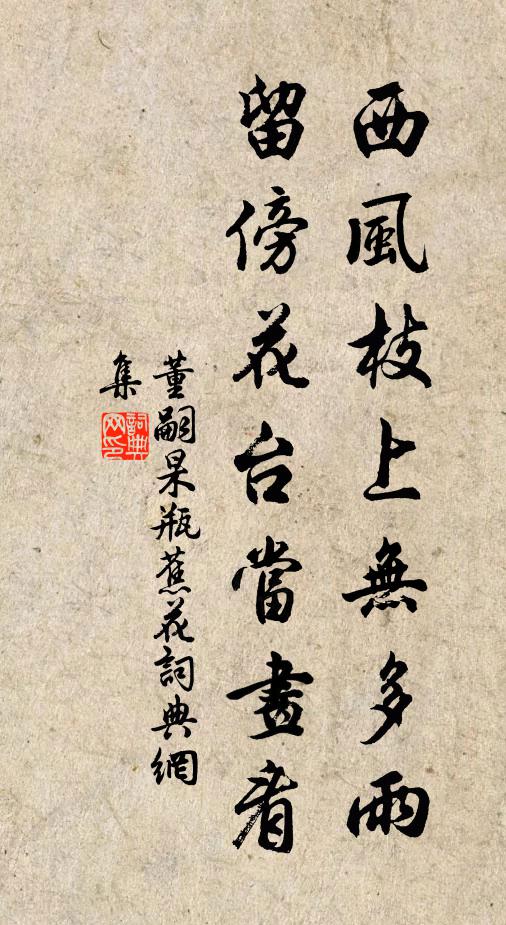 西風枝上無多雨
留傍花台當畫看
董嗣杲瓶蕉花詞典網
集
詞典网印